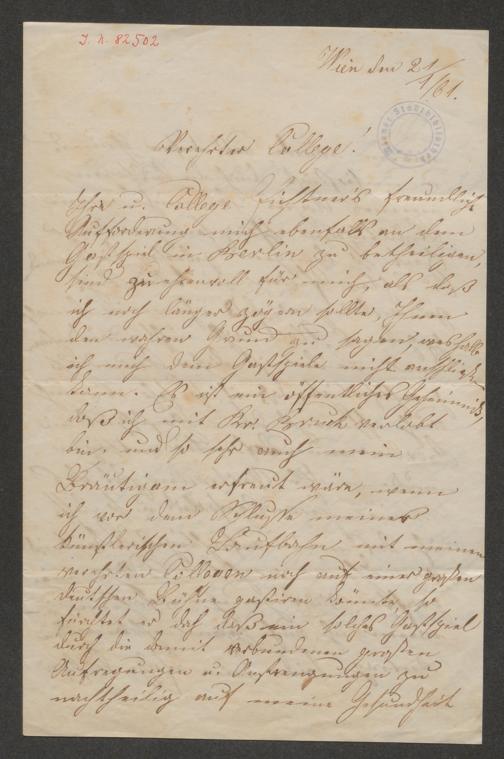 J. N. 82502
Wien den 21/1/61.
Verehrter College!
Ihre u. College Fichtner's freundliche
Aufforderung mich ebenfalls an dem
Gastspiel in Berlin zu betheiligen,
sind zu ehrenvoll für mich, als daß
ich noch länger zögern sollte, Ihnen
den wahren Grund zu sagen, weshalb
ich mich dem Gastspiele nicht anschließen
kann. Es ist ein öffentliches Geheimniß,
daß ich mit Hr. Bruck verlobt
bin, und so sehr auch mein
Bräutigam erfreut wäre, wenn
ich vor dem Schlusse meiner
künstlerischen Laufbahn mit meinen
verehrten Collegen noch auf einer großen
deutschen Bühne gastiren könnte, so
fürchtet er doch daß ein solches Gastspiel
durch die damit verbundenen großen
Aufregungen u. Anstrengungen zu
nachtheilig auf meine Gesundheit